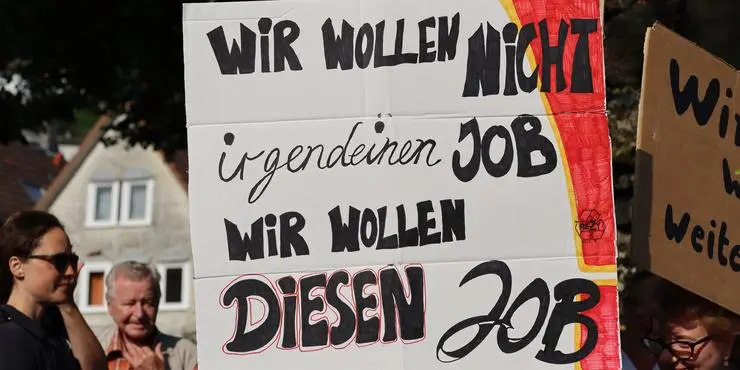 WiR WOLLEN NiCHT
irgendeinen JOB
WiR WOLLEN
DiESEN JOB
Weite